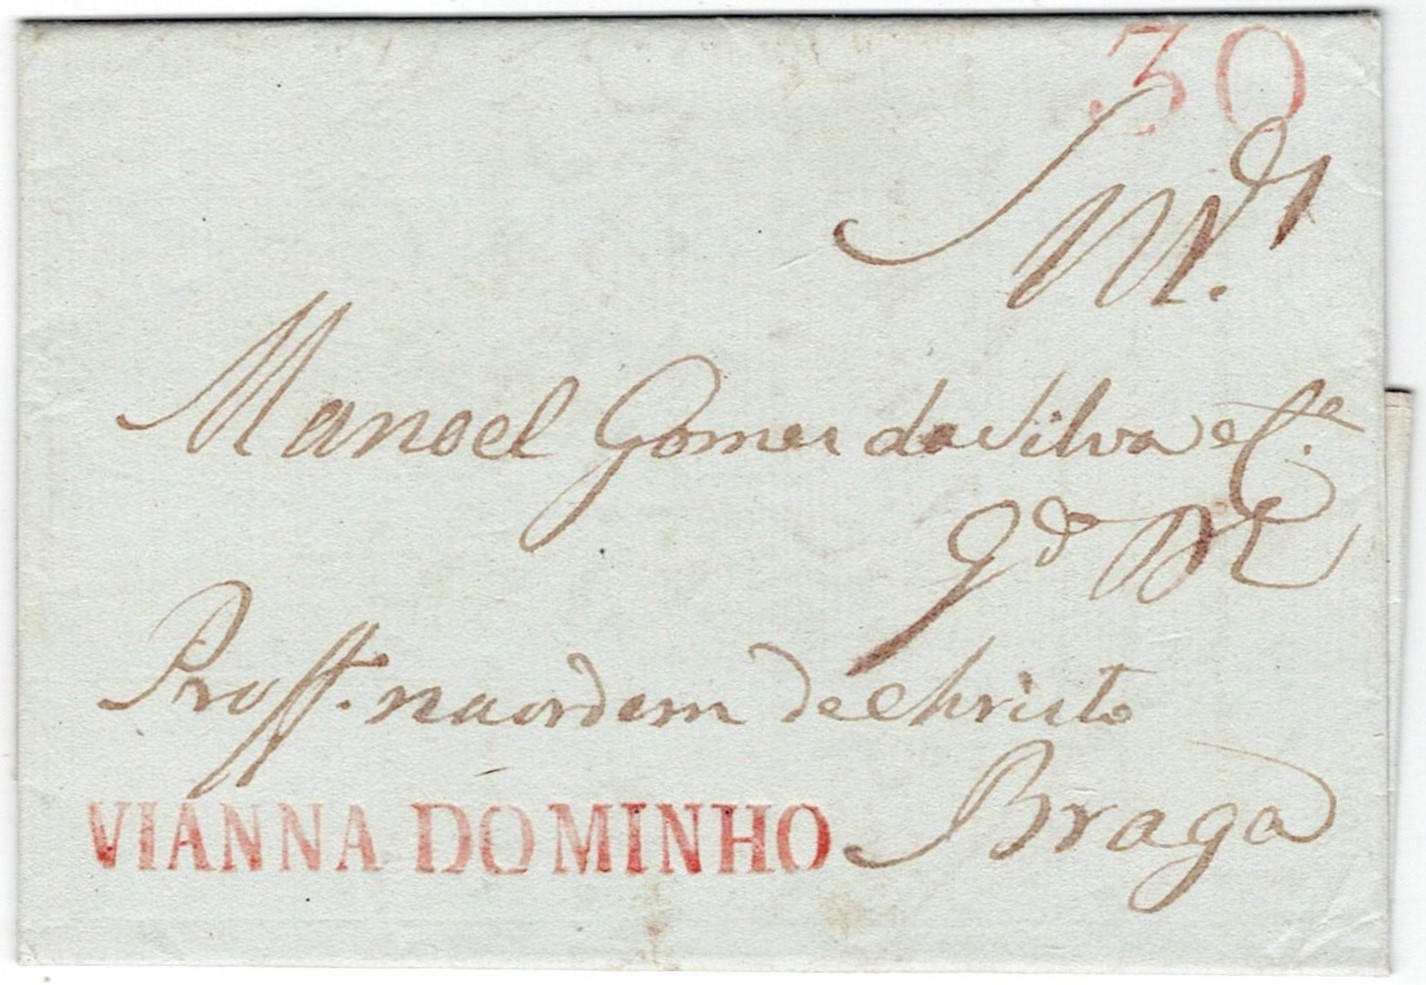 30
Manoel Gomes da Silva e C.ª
G.de M.e
Proff. na ordem de Christo
Braga
VIANNA DO MINHO